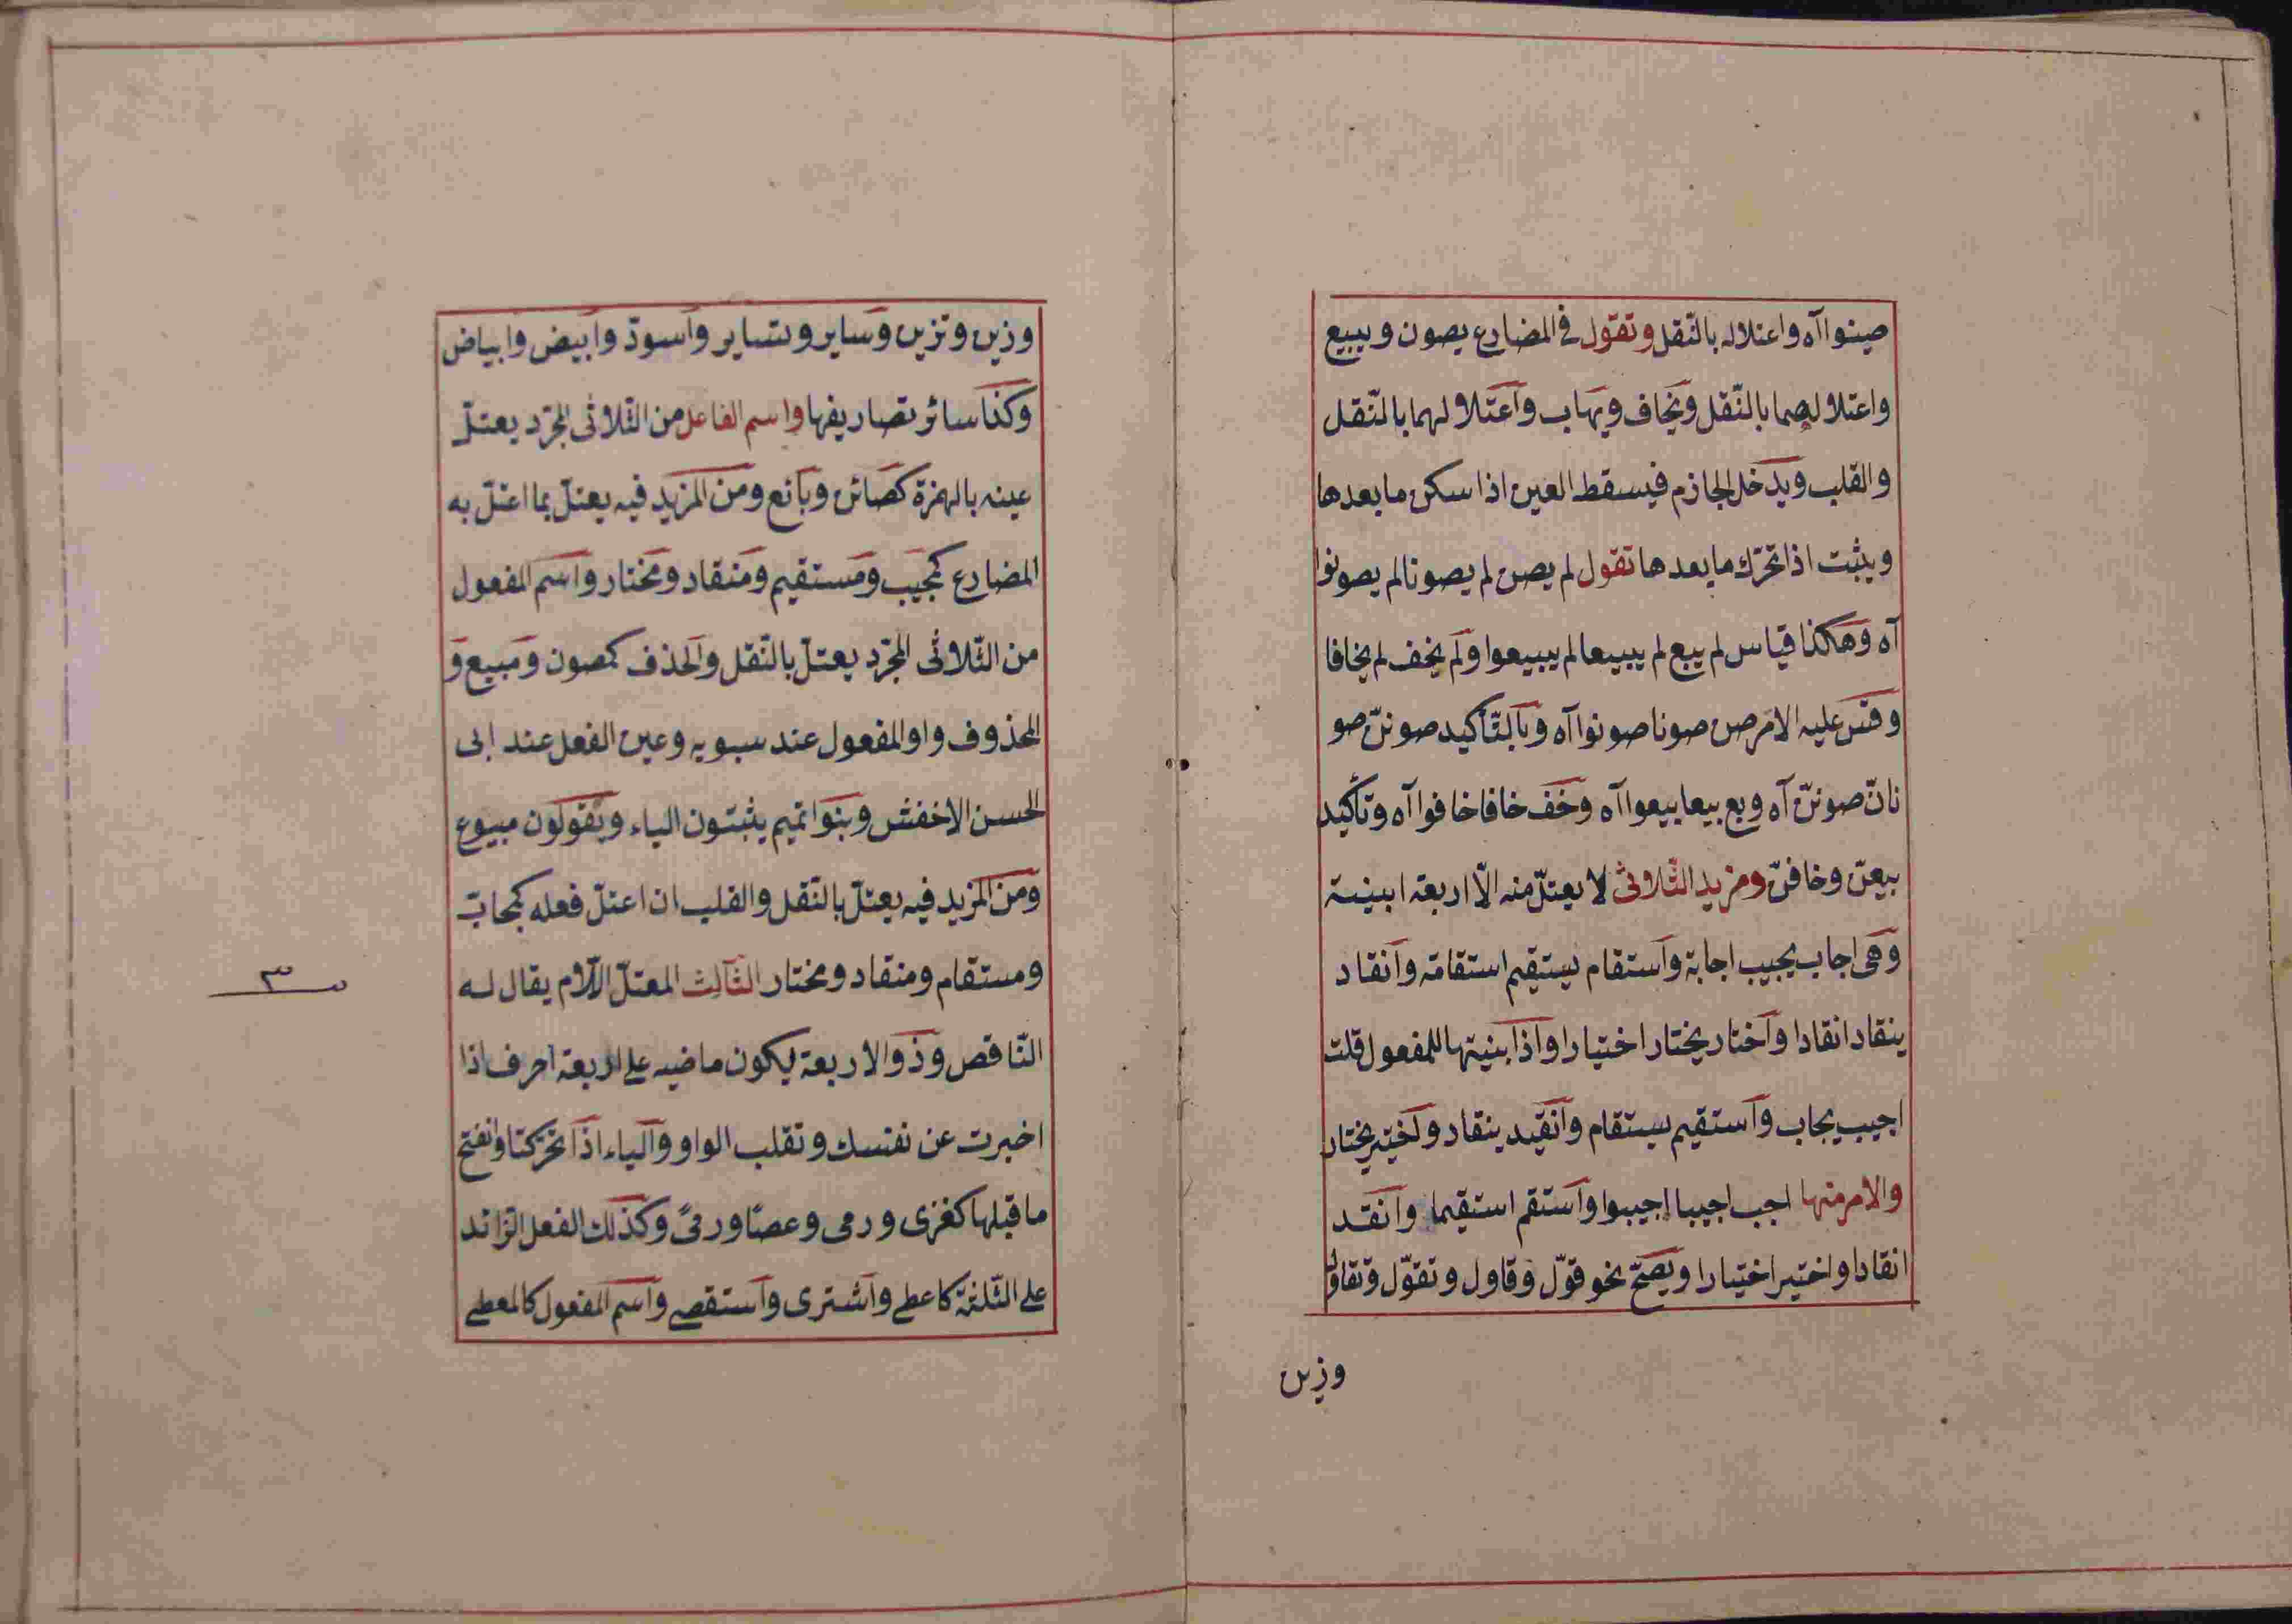 صينوا آه واعتلاله بالنّقل وتقول فى المضارع يصون ويبيع
واعتلالهما بالنّقل ويخاف ويهاب واعتلالهما بالنّقل
والقلب ويدخل الجازم فيسقط العين اذا سكن ما بعدها
ويثبت اذا تحرّك ما بعدها تقول لم يصن لم يصونا لم يصونوا
آه وهكذا قياس لم يبع لم يبيعا لم يبيعوا ولم يخف لم يخافا
وقس عليه الامر صن صونا صونوا آه وبالتّأكيد صوننّ صو
نانّ صوننّ آه وبع بيعا بيعوا آه وخف خافا خافوا آه وتأكيد
بيعنّ وخافنّ ومزيد الثّلاثى لا يعتلّ منه الّا اربعة ابنية
وهى اجاب يجيب اجابة واستقام يستقيم استقامة وانقاد
ينقاد انقادا واختار يختار اختيارا واذا بنيتها للمفعول قلت
اجيب يجاب واستقيم يستقام وانقيد ينقاد واختير يختار
والامر منها اجب اجيبا اجيبوا واستقم استقيما وانقد
انقادا واختير اختيارا ويصحّ نحو قوّل وقاول وتقوّل وتقاول
وزين
وزين وتزين وساير وتساير واسودّ وابيض وابياض
وكذا سائر تصاريفها واسم الفاعل من الثّلاثى المجرّد يعتلّ
عينه بالهمزة كصائن وبائع ومن المزيد فيه يعتلّ بما اعتلّ به
المضارع كمجيب ومستقيم ومنقاد ومختار واسم المفعول
من الثّلاثى المجرّد يعتلّ بالنّقل والحذف كمصون ومبيع و
المحذوف واو المفعول عند سبويه وعين الفعل عند ابى
الحسن الاخفش وبنوا تميم يثبتون الياء ويقولون مبيوع
ومن المزيد فيه يعتلّ بالنّقل والقلب ان اعتلّ فعله كمجاب
ومستقام ومنقاد ومختار الثّالث المعتلّ اللّام يقال له
النّاقص وذو الاربعة ليكون ماضيه على اربعة احرف اذا
اخبرت عن نفسك وتقلب الواو والياء اذا تحرّكتا وانفتح
ما قبلها كغزى ورمى وعصًا ورمىً وكذلك الفعل الزّائد
على الثّلثة كاعطى واشترى واستقصى واسم المفعول كالمعطى